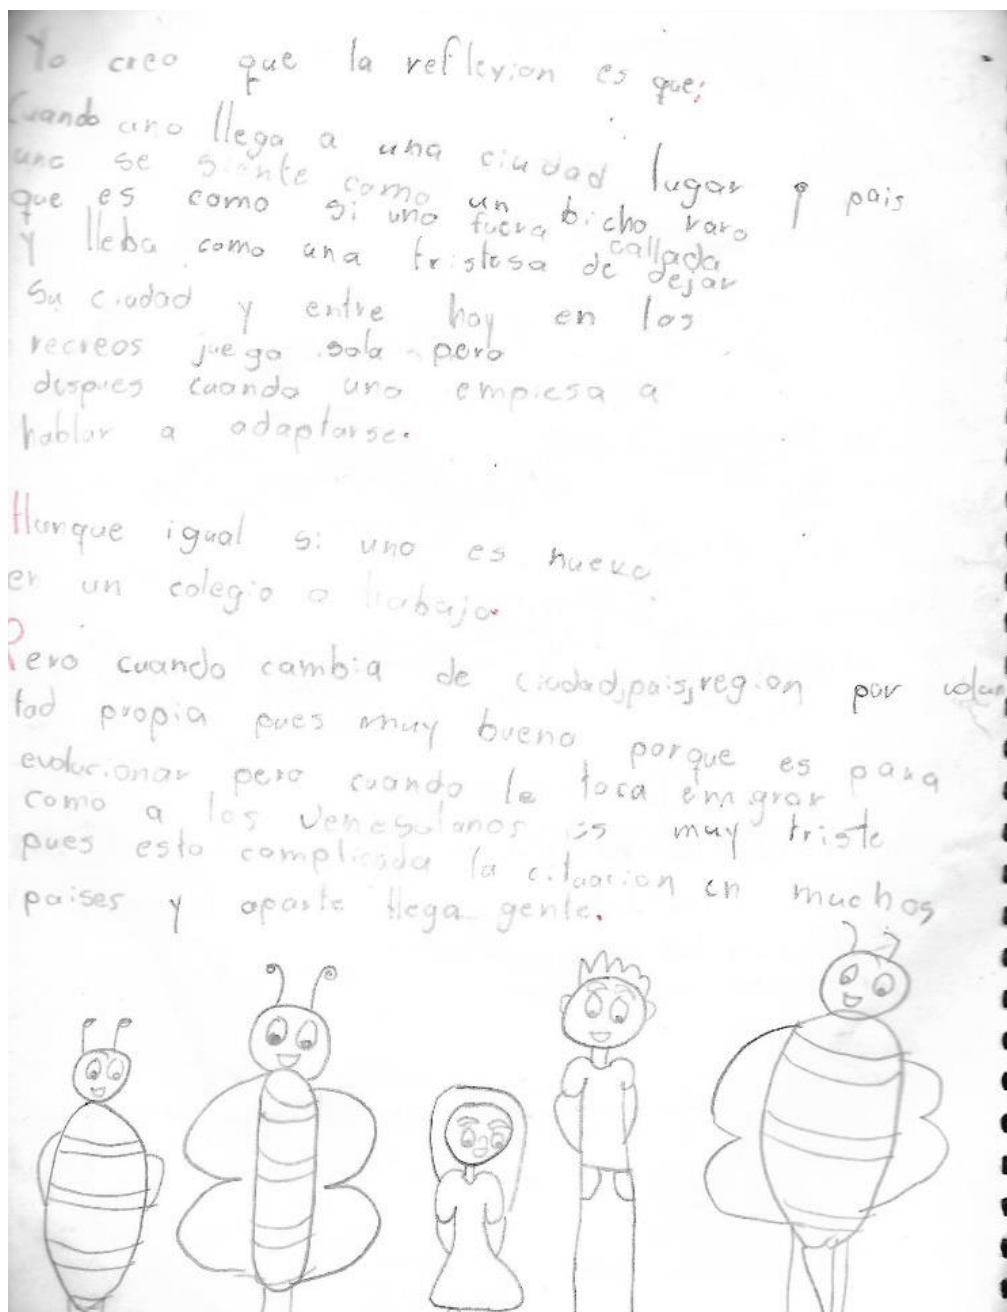 Yo creo que la reflexion es que:
Cuando uno llega a una ciudad lugar y pais
uno se siente como un bicho raro
que es como si uno fuera callada
y lleba como una tristesa de dejar
su ciudad y entre hoy en los
recreos juego sola pero
despues cuando uno empiesa a
hablar a adaptarse.
Aunque igual si uno es nuevo
en un colegio o trabajo.
Pero cuando cambia de ciudad,pais,region por volun
tad propia pues muy bueno porque es para
evolucionar pero cuando le toca emigrar
como a los venesolanos es muy triste
pues esta complicada la cituacion en muchos
paises y aparte llega gente.